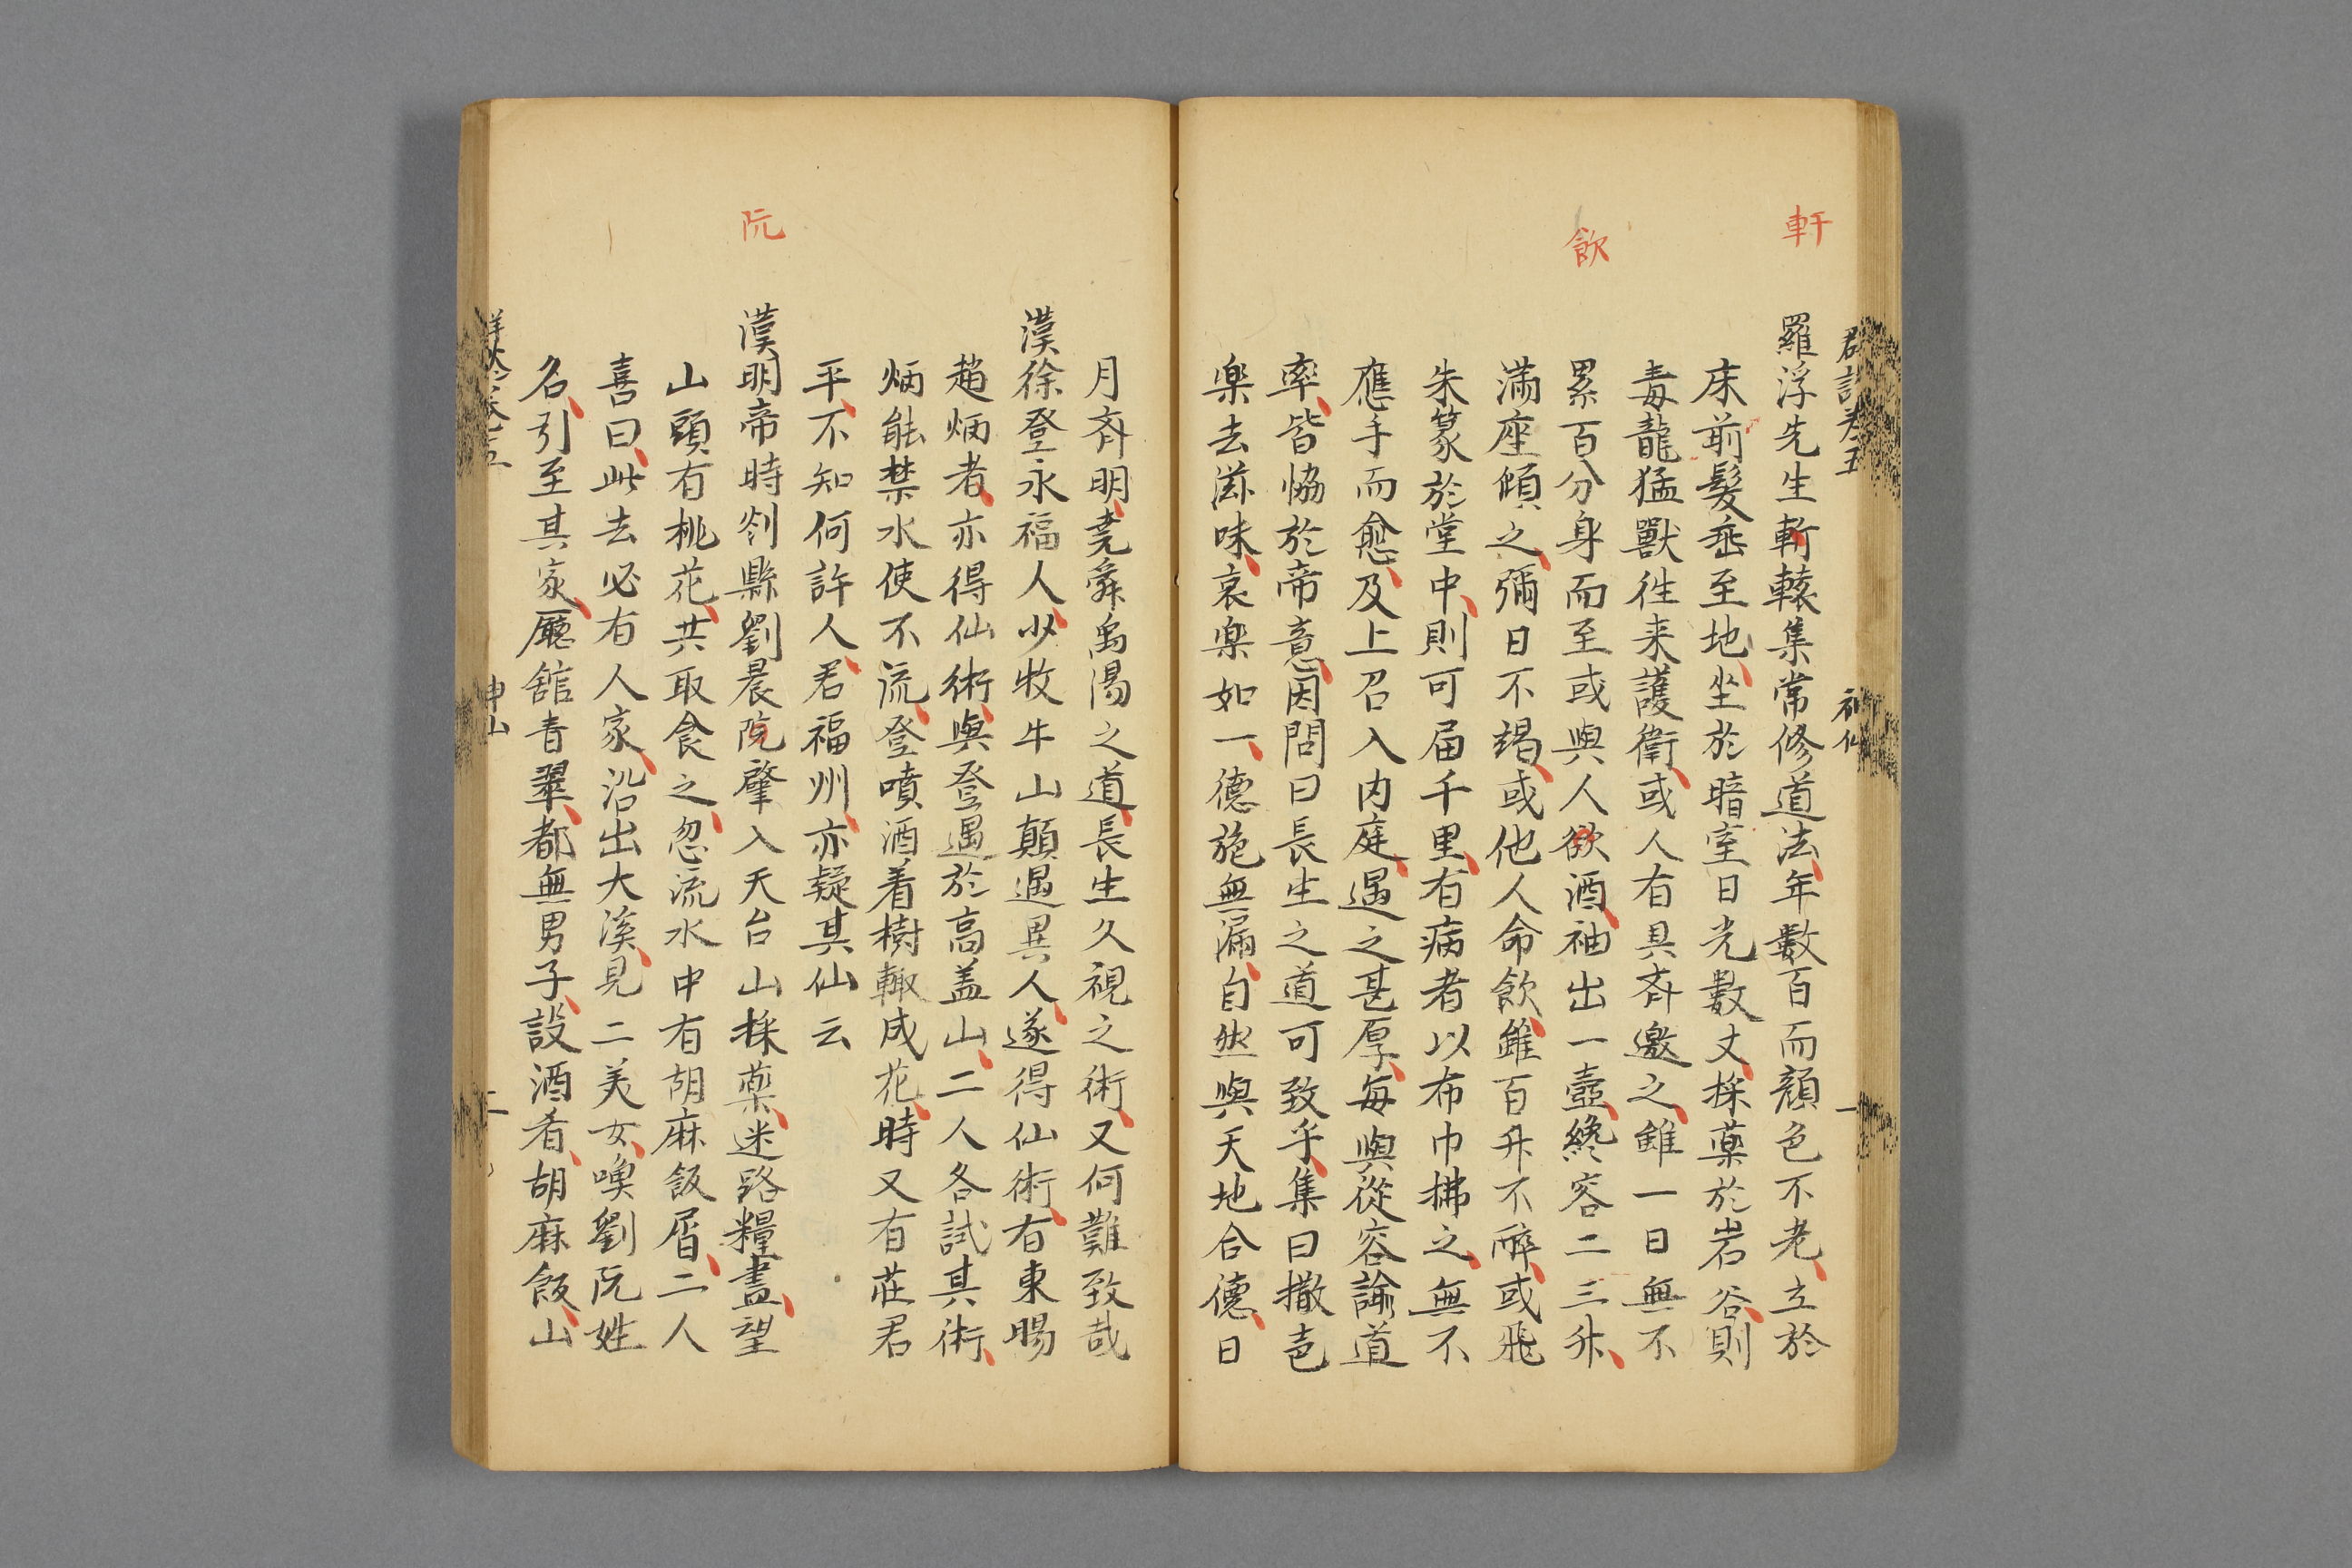 軒
飲
羅浮先生斬轅集常修道法年數百而顏色不老立於
床前髮垂至地坐於暗室目光數丈採藥於岩谷則
毒龍猛獸徃来護衛或人有具斉邀之雖一日無不
累百分身而至或與人欲酒袖出一壺纔容二三升
滿座傾之彌日不竭或他人命飲雖百升不醉或飛
朱篆於堂中則可届千里有病者以布巾拂之無不
應手而愈及上召入内庭遇之甚厚每與從容論道
率皆恊於帝意因問曰長生之道可致乎集曰撤
樂去滋味哀樂如一德施無漏自然與天地合德日
阮
月斉明尭舜禹湯之道長生久視之術又何難致哉
漢徐登永福人少牧牛山顛遇異人遂得仙術有東暘
趙炳者亦得仙術與登遇於高盖山二人各試其術
炳能禁水使不流登噴酒着樹輙成花時又有荘君
平不知何許人君福州亦疑其仙云
漢明帝時剡縣劉晨院肇入天台山採藥迷路糧盡望
山頭有桃花共取食之忽流水中有胡麻飯屑二人
喜曰此去必有人家沿出大溪見二美女喚劉阮姓
名引至其家廰舘青翠都無男子設酒肴胡麻飯山